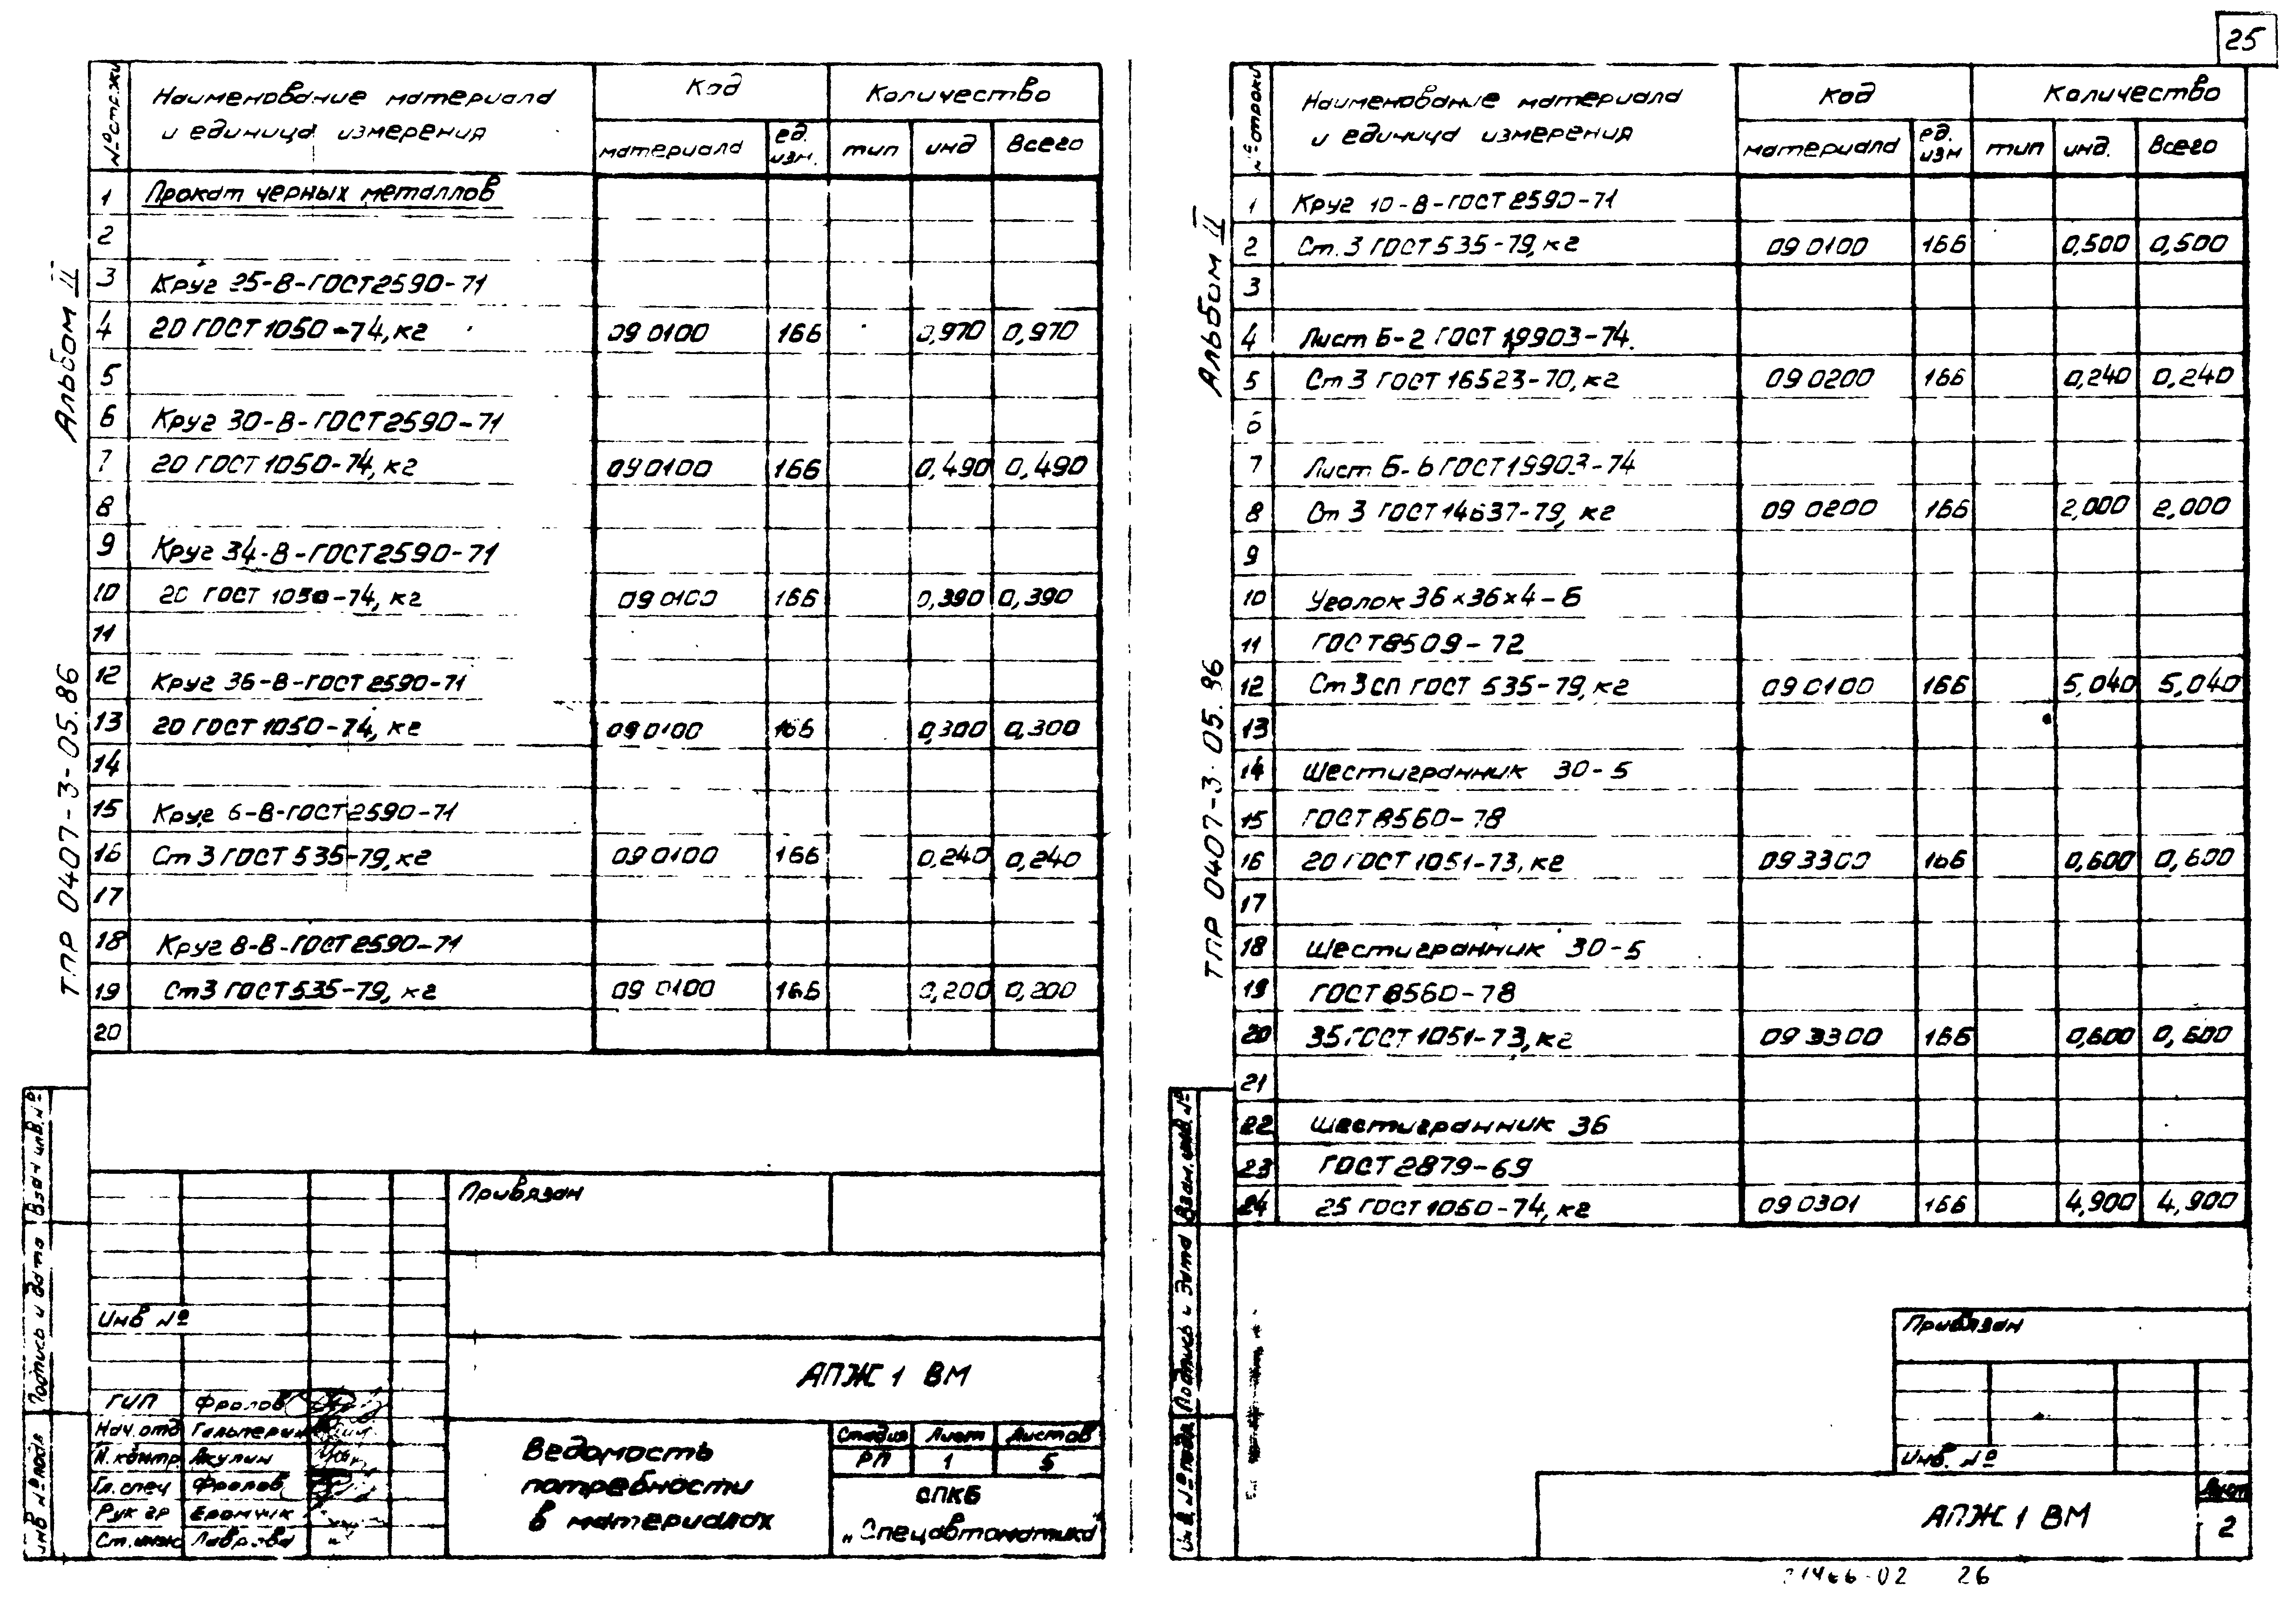 25
Альбом II
ТПР 0407-3-05.86
№ строки | Наименование материала и единица измерения | Код | Количество
материала | ед. изм. | тип | инд | Всего
1 Прокат черных металлов
2
3 Круг 25-В-ГОСТ2590-71
4 20 ГОСТ 1050-74, кг 09 0100 166 0,970 0,970
5
6 Круг 30-В-ГОСТ2590-71
7 20 ГОСТ 1050-74, кг 09 0100 166 0,490 0,490
8
9 Круг 34-В-ГОСТ2590-71
10 20 ГОСТ 1050-74, кг 09 0100 166 0,390 0,390
11
12 Круг 36-В-ГОСТ2590-71
13 20 ГОСТ 1050-74, кг 09 0100 166 0,300 0,300
14
15 Круг 6-В-ГОСТ2590-71
16 Ст 3 ГОСТ 535-79, кг 09 0100 166 0,240 0,240
17
18 Круг 8-В-ГОСТ2590-71
19 Ст3 ГОСТ535-79, кг 09 0100 166 0,200 0,200
20
Взам инв. №
Подпись и дата
Инв № подл
Привязан
Инв №
АПЖ 1 ВМ
ГИП Фролов
Нач. отд Гальперин
Н. контр Акулин
Гл. спец Фролов
Рук гр Еромчик
Ст. инж Лаврова
Ведомость
потребности
в материалах
Стадия Лист Листов
РП 1 5
СПКБ
„Спецавтоматика"
Альбом II
ТПР 0407-3-05.86
№ строки | Наименование материала и единица измерения | Код | Количество
материала | ед. изм | тип | инд. | Всего
1 Круг 10-В-ГОСТ2590-71
2 Ст. 3 ГОСТ 535-79, кг 09 0100 166 0,500 0,500
3
4 Лист Б-2 ГОСТ 19903-74.
5 Ст 3 ГОСТ 16523-70, кг 09 0200 166 0,240 0,240
6
7 Лист Б-6 ГОСТ19903-74
8 Ст 3 ГОСТ 14637-79, кг 09 0200 166 2,000 2,000
9
10 Уголок 36×36×4-Б
11 ГОСТ8509-72
12 Ст 3 сп ГОСТ 535-79, кг 09 0100 166 5,040 5,040
13
14 Шестигранник 30-5
15 ГОСТ8560-78
16 20 ГОСТ 1051-73, кг 09 3300 166 0,600 0,600
17
18 Шестигранник 30-5
19 ГОСТ8560-78
20 35 ГОСТ 1051-73, кг 09 3300 166 0,600 0,600
21
22 Шестигранник 36
23 ГОСТ2879-69
24 25 ГОСТ 1050-74, кг 09 0301 166 4,900 4,900
Взам. инв. №
Подпись и дата
Инв. № подл.
Привязан
Инв. №
АПЖ 1 ВМ
Лист
2
21466-02 26